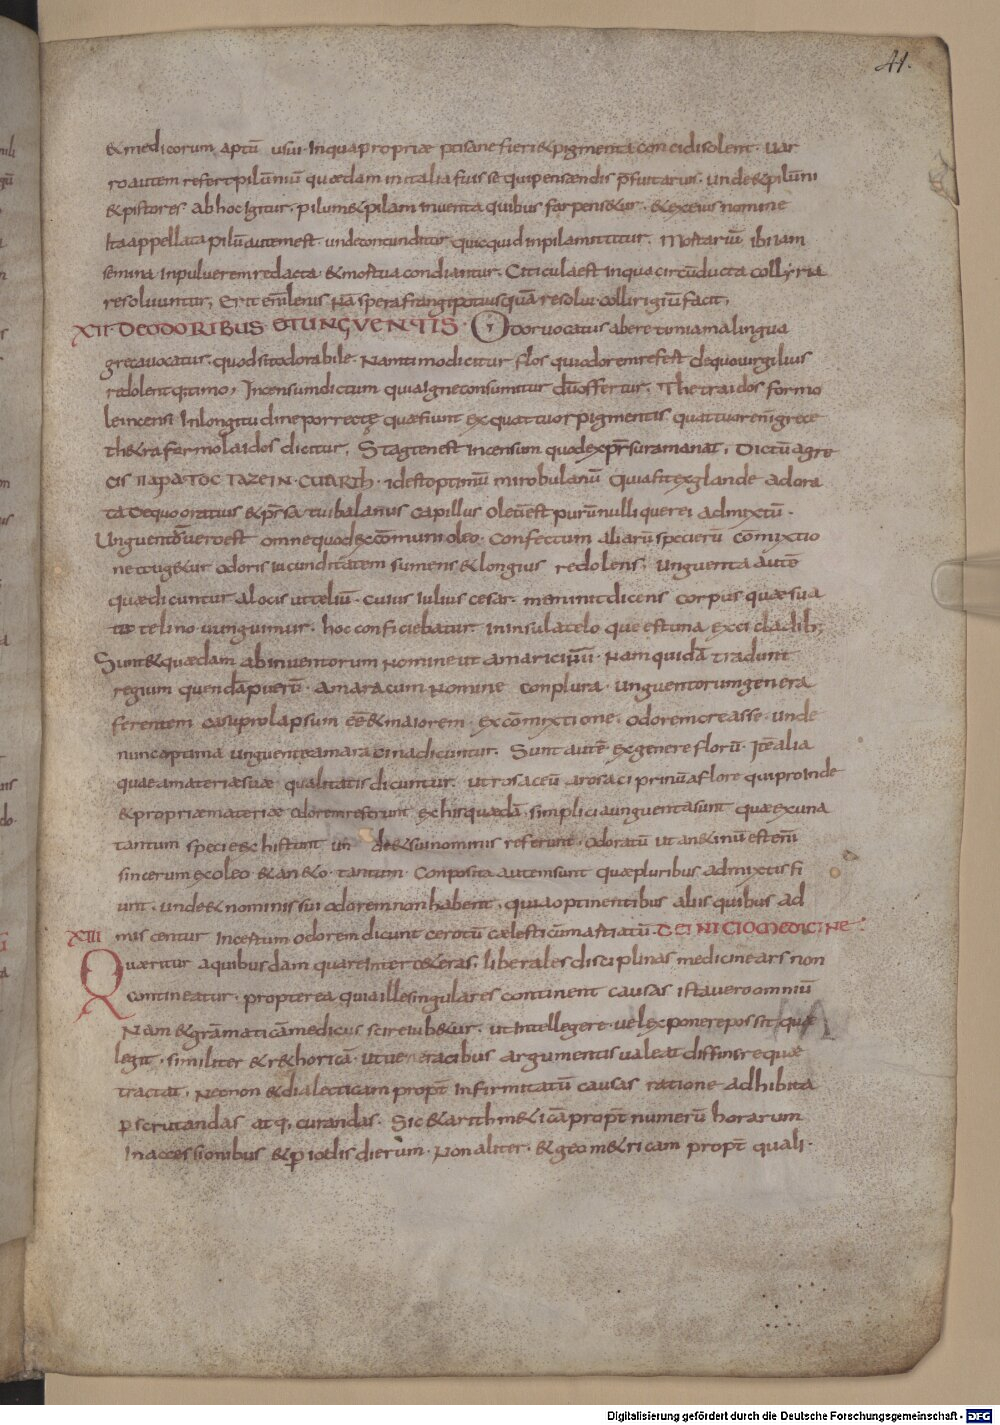 41.
& medicorum aptū usui. In qua propriae ptisane fieri & pigmenta concidi solent. Var
ro autem refert pilūniū quaedam in italia fuisse qui pensaendis p̄fuit arvis. unde & pilūni
& pistores ab hoc igitur. pilum & pilam inventa quibus far pens&ur. & ex eius nomine
ita appellata pilū autem est unde contunditur quicquid in pila mittitur. Mortariū ibi iam
semina in pulverem redacta & mortua condiantur. Citicula est in qua circūducta collyria
resolvuntur; Erit em̄ lenis Nā spera frangi potius quā resolvi collirigiū facit;
XII DE ODORIBUS ET UNGVENTIS. Odor vocatus ab ere timiama lingua
greca vocatur. quod sit odorabile. Nam timo dicitur flos qui odorem refert de quo virgilius
redolent q; timo; Incensum dictum quia igne consumitur dū offertur. Thetraidos formo
le incensi in longitudine porrecte quae fiunt ex quattuor pigmentis quattuor em̄ grece
th&ra formola idos dicitur. Stagten est incensum quod ex p̄ssura manat. Dictū a gre
cis ΠΑΡΑ ΤΟC ΤΑΖΕΙΝ. id est optimū mirobulanū Quia fit ex glande adora
ta De quo oratius & p̄ssa tui balanus capillus Oleū est purū nulli que rei admixtū.
Unguentō vero est omne quod ex cōmuni oleo. Confectum aliarū specierū cōmixtio
ne augetur odoris iucunditatem sumens & longius redolens; Unguenta autē
quae dicuntur a locis ut teliū. cuius iulius cesar. meminit dicens corpus quae sua
telino uunguimur. hoc conficiebatur in insula telo que est una ex cicladib;
Sunt & quaedam ab inventorum nomine ut amaricinū. Nam quidā tradunt
regium quendā puerū. amaracum nomine conplura. unguentorum genera
ferentem casu prolapsum eē & maiorem. ex cōmixtione. odorem creasse. unde
nunc optima unguente amaracina dicuntur. Sunt autē ex genere florū. Itē alia
quae a materiae suae qualitatis dicuntur. ut rosaceū a rosa ciprinū a flore qui proinde
& propriae materiae odorem referunt ex his quaedā. simplicia unguenta sunt quae ex una
tantum specie & his fiunt un de & sui nominis referunt. odoratū ut an&inū est em̄
sincerum ex oleo & an&o. tantum. Conposita autem sunt quae pluribus admixtis fi
unt. unde & nominis sui odorem non habent. quia optinentibus aliis quibus ad
XIII miscentur incertum odorem dicunt cerotū caelesticū mastiatū. DE INICIO MEDICINE
Quaeritur a quibusdam quare inter c&eras. liberales disciplinas medicine ars non
contineatur. propterea quia ille singulares continent causas ista vero omniū
Nam & grāmaticā medicus scire iub&ur. ut intellegere. vel exponere possit quae
legit. similiter & r&horicā. ut veneracibus argumentis valeat diffinire quae
tractat; Necnon & dialecticam propt̄ infirmitatū causas ratione adhibita
perscrutandas atq; curandas. Sic & arithm&icā propt̄ numerū horarum
in accessionibus & p iodis dierum. Non aliter. & geom&ricam propt̄ quali.
Digitalisierung gefördert durch die Deutsche Forschungsgemeinschaft - DFG